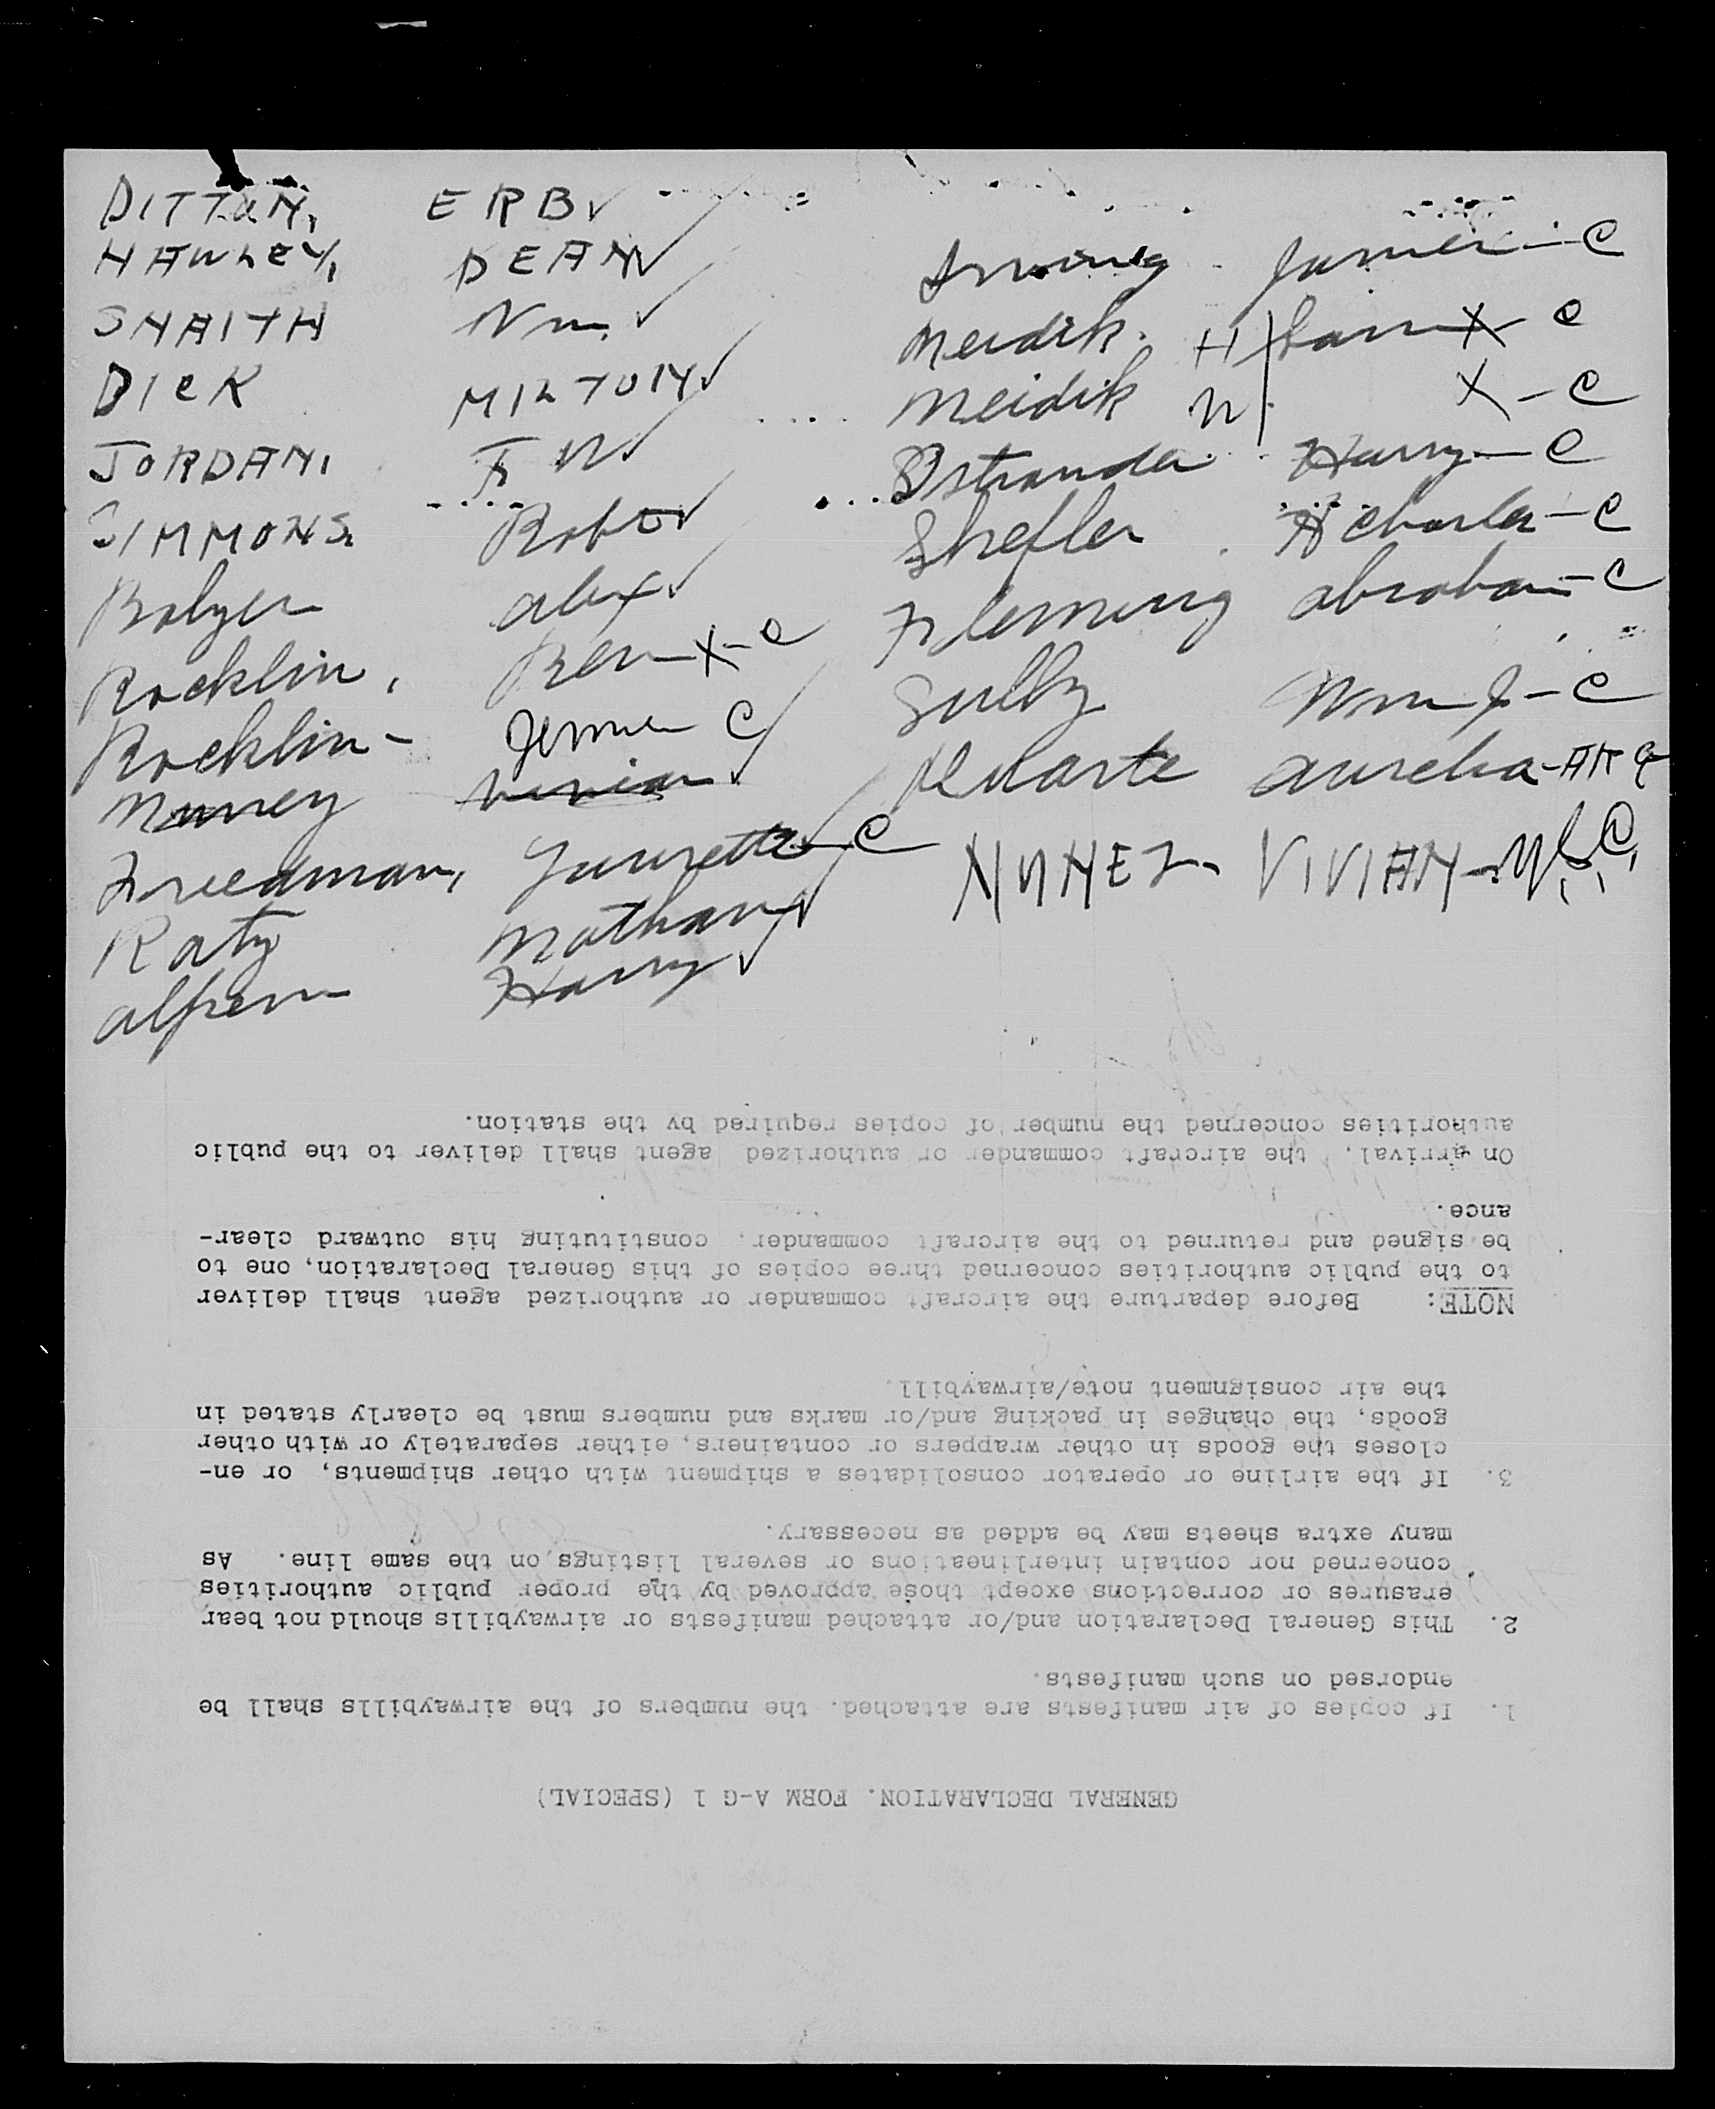 DITTAN, ERB
HAWLEY, DEAN
SNAITH Wm.
DICK MILTON
JORDAN, F W
SIMMONS. Robt
Bolger Alex
Rocklin, Ben X-C
Rocklin- Jennie C
Nuney Vivian
Freedman, Jeurette-C
Katz Nathan
Alpern Harry
Irving James-C
Meidik. H X-C
Meidik W. X-C
Ostrander Harry-C
Shefler H Charles-C
Fleming Abraham-C
Sully Wm J-C
Aurelia-AR
NUNEZ- VIVIAN-
GENERAL DECLARATION. FORM A-G 1 (SPECIAL)
1. If copies of air manifests are attached. the numbers of the airwaybills shall be
endorsed on such manifests.
2. This General Declaration and/or attached manifests or airwaybills should not bear
erasures or corrections except those approved by the proper public authorities
concerned nor contain interlineations or several listings on the same line. As
many extra sheets may be added as necessary.
3. If the airline or operator consolidates a shipment with other shipments, or en-
closes the goods in other wrappers or containers, either separately or with other
goods, the changes in packing and/or marks and numbers must be clearly stated in
the air consignment note/airwaybill.
NOTE: Before departure the aircraft commander or authorized agent shall deliver
to the public authorities concerned three copies of this General Declaration, one to
be signed and returned to the aircraft commander. constituting his outward clear-
ance.
On arrival. the aircraft commander or authorized agent shall deliver to the public
authorities concerned the number of copies required by the station.